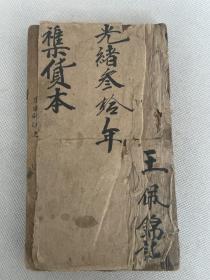 光緒叁拾年
王佩錦記
襍貨本